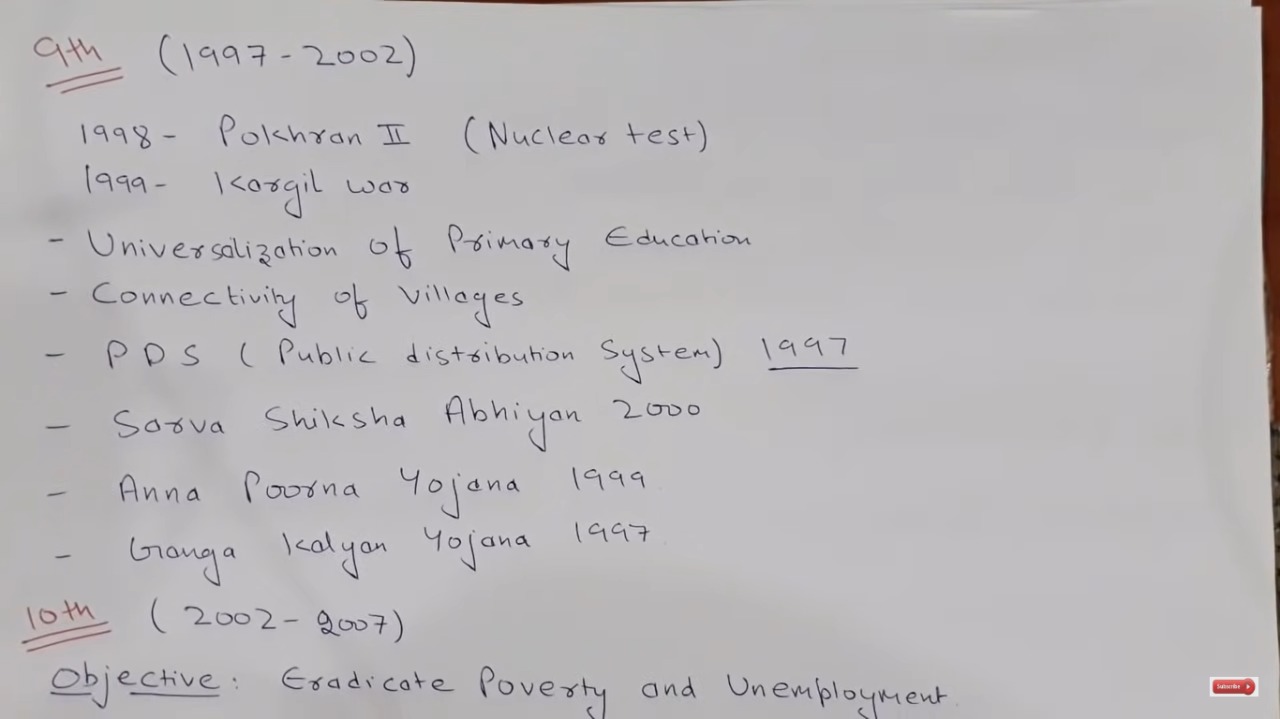 9th (1997-2002)
1998- Pokhran II (Nuclear test)
1999- Kargil war
- Universalization of Primary Education
- Connectivity of Villages
- PDS (Public distribution System) 1997
- Sarva Shiksha Abhiyan 2000
- Anna Poorna Yojana 1999
- Ganga Kalyan Yojana 1997
10th (2002-2007)
Objective: Eradicate Poverty and Unemployment
Subscribe